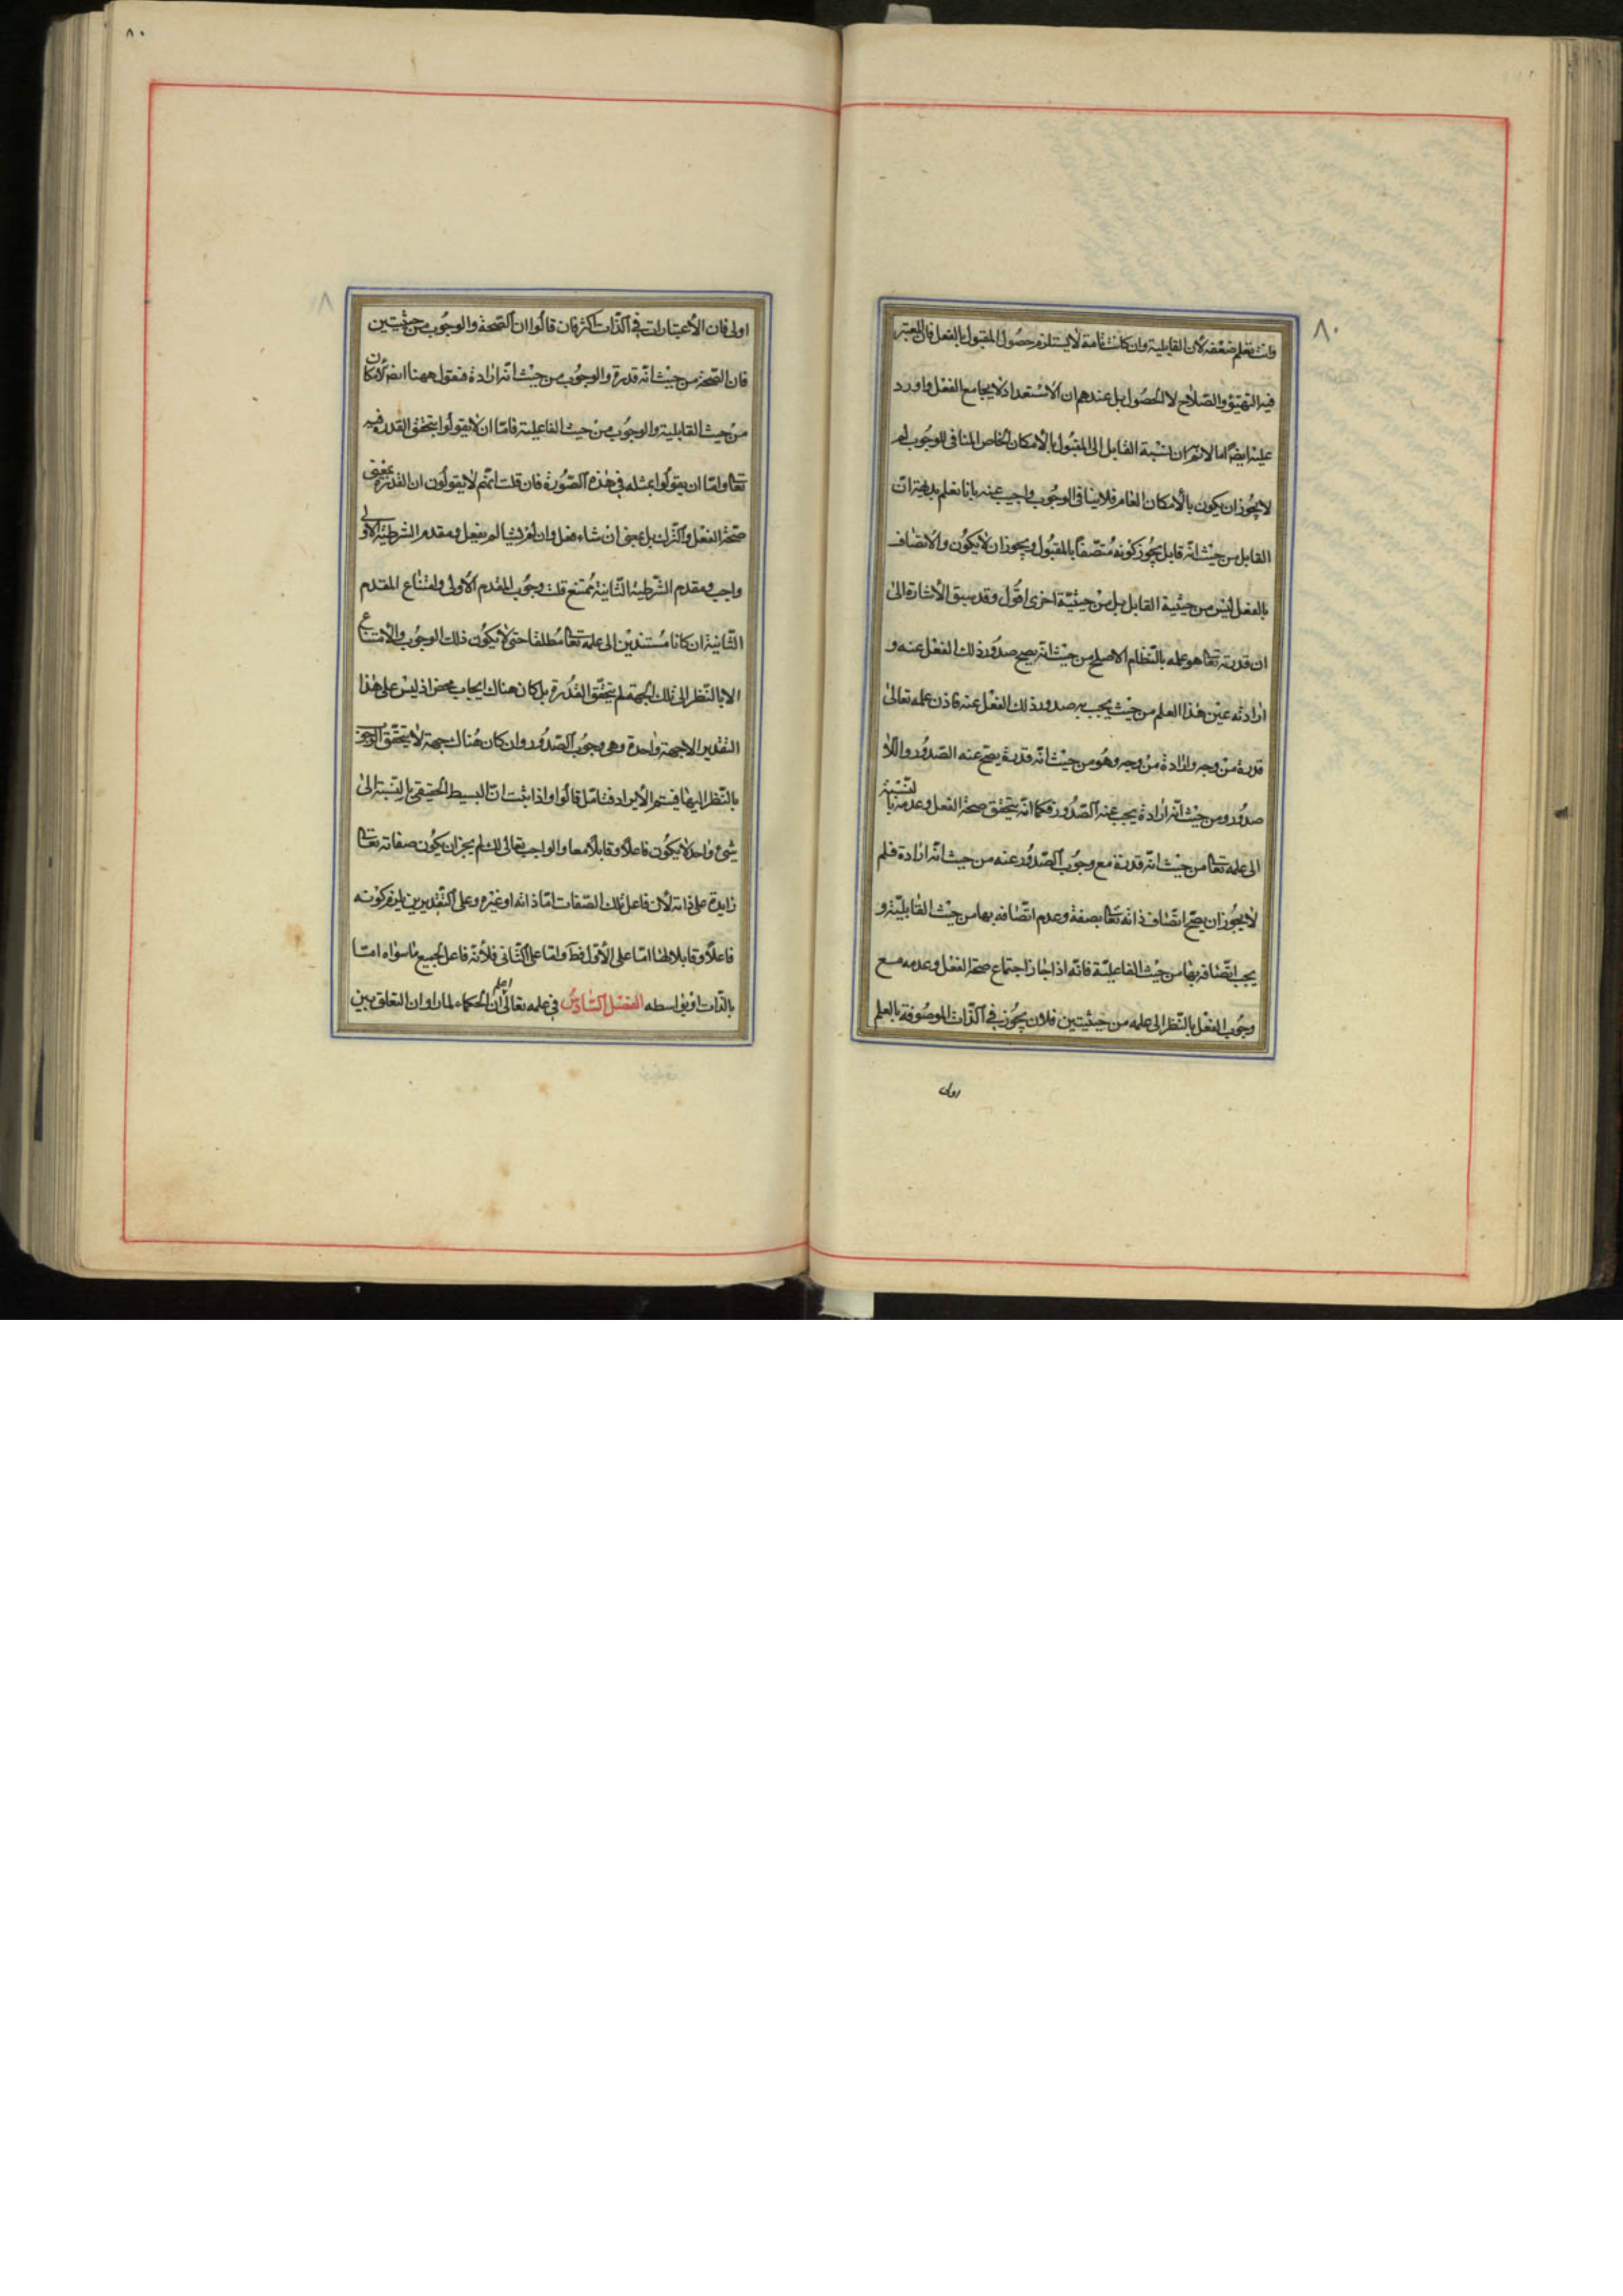 ٨٠
وانت تعلم ضعفه لان القابلية وان كانت تامة لا يستلزم حصول المقبول بالفعل فان المعتبر
فيه التهيؤ والصلاح لا الحصول بل عندهم ان الاستعداد لا يجامع الفعل واورد
عليه ايضا اما لانم ان نسبة القابل الى المقبول بالامكان الخاص المنافى للوجوب لم
لا يجوز ان يكون بالامكان العام فلا ينافى الوجوب واجيب عنه بانا نعلم بديهة ان
القابل من حيث انه قابل يجوز كونه متصفا بالمقبول ويجوز ان لا يكون والاتصاف
بالفعل ليس من حيثية القابل بل من حيثية اخرى اقول وقد سبق الاشارة الى
ان قدرته تعالى هو علمه بالنظام الاصلح من حيث انه يصح صدور ذلك الفعل عنه و
ارادته عين هذا العلم من حيث يجب به صدور ذلك الفعل عنه فاذن علمه تعالى
قدرة من وجه وارادة من وجه وهو من حيث انه قدرة يصح عنه الصدور واللا
صدور ومن حيث انه ارادة يجب عنه الصدور فكما انه يتحقق صحة الفعل وعدمه بالنسبة
الى علمه تعالى من حيث انه قدرة مع وجوب الصدور عنه من حيث انه ارادة فلم
لا يجوز ان يصح اتصاف ذاته تعالى بصفة وعدم اتصافه بها من حيث القابلية و
يجب اتصافه بها من حيث الفاعلية فانه اذا جاز اجتماع صحة الفعل وعدمه مع
وجوب الفعل بالنظر الى علمه من حيثيتين فلان يجوز فى الذات الموصوفة بالعلم
اولى
٨٠
اولى فان الاعتبارات فى الذات اكثر فان قالوا ان الصحة والوجوب من حيثيتين
فان الصحة من حيث انه قدرة والوجوب من حيث انه ارادة فنقول ههنا ايضا الامكان
من حيث القابلية والوجوب من حيث الفاعلية فاما ان لا يقولوا بتحقق القدرة فيه
تعالى واما ان يقولوا بمثله فى هذه الصورة فان قلت انهم لا يقولون ان القدرة بمعنى
صحة الفعل والترك بل بمعنى ان شاء فعل وان لم يشا لم يفعل ومقدم الشرطية الاولى
واجب ومقدم الشرطية الثانية ممتنع قلت وجوب المقدم الاولى وامتناع المقدم
الثانية ان كانا مستندين الى علمه تعالى مطلقا حتى لا يكون ذلك الوجوب والامتناع
الا بالنظر الى تلك الجهة لم يتحقق القدرة بل كان هناك ايجاب محض اذ ليس على هذا
التقدير الا جهة واحدة وهى وجوب الصدور وان كان هناك جهة لا يتحقق الوجوب
بالنظر اليها فيستمر الايراد فتامل قالوا واذا ثبت ان البسيط الحقيقى بالنسبة الى
شىء واحد لا يكون فاعلا وقابلا معا والواجب تعالى كذلك لم يجز ان يكون صفاته تعالى
زايدة على ذاته لان فاعل تلك الصفات اما ذاته او غيره وعلى التقديرين يلزم كونه
فاعلا وقابلا لها اما على الاول فظ واما على الثانى فلانه فاعل لجميع ما سواه اما
بالذات او بواسطه الفصل السادس فى علمه تعالى اعلم ان الحكماء لما راوا ان التعلق بين